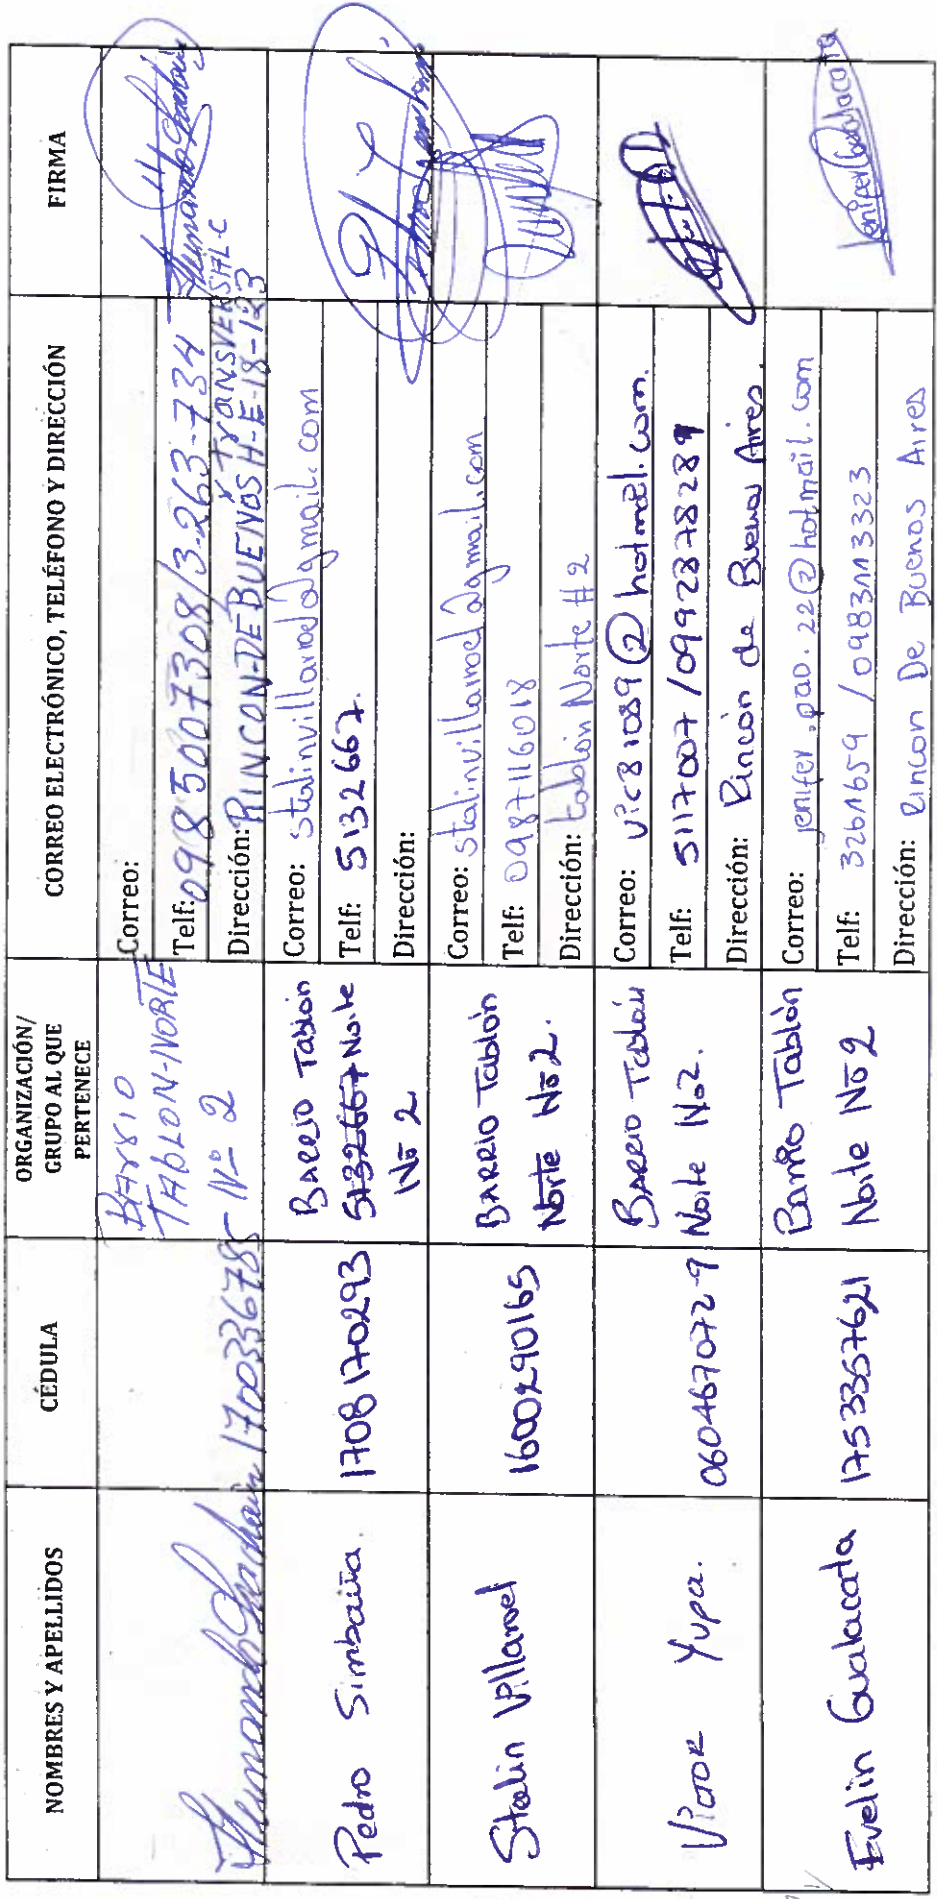 NOMBRES Y APELLIDOS
CÉDULA
ORGANIZACIÓN/
GRUPO AL QUE
PERTENECE
CORREO ELECTRÓNICO, TELÉFONO Y DIRECCIÓN
FIRMA
1700336785
BArrio
TABLON-NORTE
Nº 2
Correo:
Telf: 0985007308/3-263-734
Dirección: RINCON-DE BUENOS H-E-18-123
TranSVERSAL-C
Pedro Simbaña.
1708170293
BARRIO Tablón
5132667 Norte
Nº 2
Correo: stalinvillaroel@gmail.com
Telf: 5132667.
Dirección:
Stalin Villaroel
1600290165
BARRIO Tablón
Norte Nº 2.
Correo: stalinvillaroel@gmail.com
Telf: 0987116018
Dirección: tablón Norte # 2
Victor Yupa.
060467072-9
BARRIO Tablón
Norte No2.
Correo: vic81089@hotmail.com.
Telf: 5117007/0992878289
Dirección: Rincón de Buenos Aires.
Evelin Gualacata
1753357621
Barrio Tablón
Norte Nº 2
Correo: jenifer.pao.22@hotmail.com
Telf: 3261659 / 0983113323
Dirección: Rincon De Buenos Aires
Jenifer Gualacata